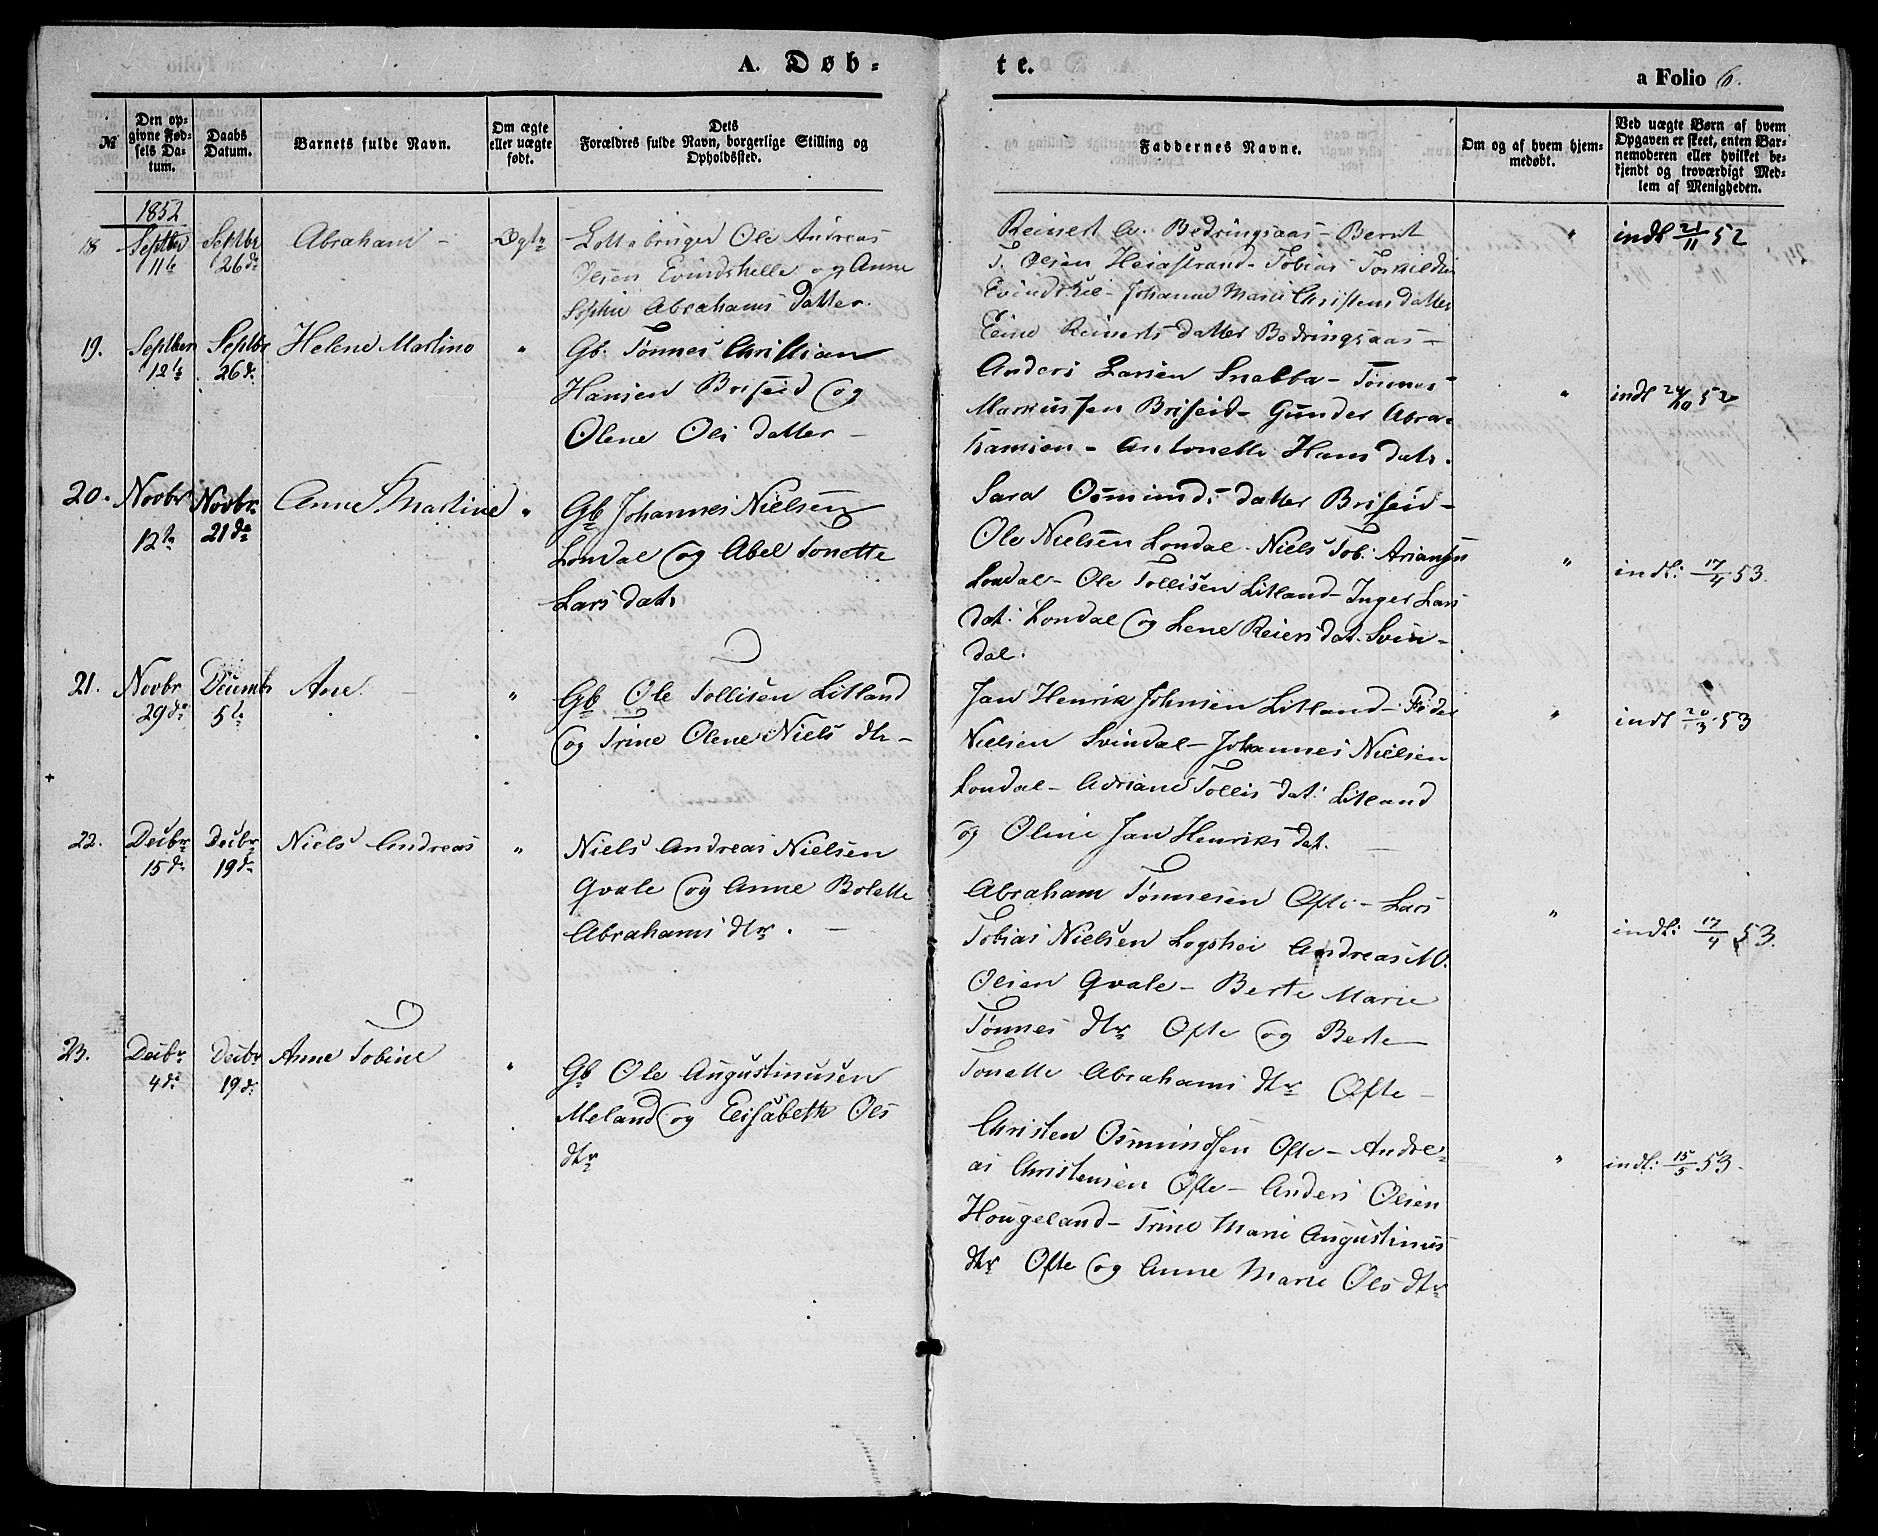 A. Døb-
te.
a Folio 6.
№
Den op-
givne Fød-
sels Da-
tum.
Daabs
Datum.
Barnets fulde Navn.
Om ægte
eller uægte
født.
Dets
Forældres fulde Navn, borgerlige Stilling og
Opholdssted.
Faddernes Navne.
Om og af hvem hjem-
medøbt.
Ved uægte Børn af hvem
Opgaven er skeet, enten Bar-
nemoderen eller hvilket be-
kjendt og troværdigt Med-
lem af Menigheden.
1852
18
Septbr
11te
Septbr
26de
Abraham -
Ægte
Ole Andreas
Olsen Evindshelle og Anne
Sophie Abrahams datter.
Reinert A. Bedringsaas - Bernt
T. Olsen - Tobias Torkildsen
- Johanne Marie Christens datter
Reinerts datter Bedringsaas -
"
indl 21/11 52
19.
Septbr
12te
Septbr
26de
Helene Martine
"
Gb. Tønnes Christian
Hansen Briseid og
Olene Ols datter -
Anders Larsen Snabba - Tønnes
Markussen Briseid - Gunder Abra-
hamsen - Antonette Hans datr.
Sara Osmunds datter Briseid -
"
indl 24/10 52
20.
Novbr
12te
Novbr
21de
Anne Martine
"
Gb Johannes Nielsen
Londal og Abel Tonette
Lars datr
Ole Nielsen Londal - Niels Tob. Ariansen
Londal - Ole Tollisen Litland - Inger Lars
dat. Londal og Lene Reiers dat. Svin-
dal.
"
indl: 17/4 53.
21.
Novbr
29de
Decembr
5te
Ane. -
"
Gb Ole Tollisen Litland
og Trine Olene Niels dtr -
Jan Henrik Johnsen Litland -
Nielsen Svindal - Johannes Nielsen
Londal - Adriane Tollis dat. Litland
og Oline Jan Henriks dat. -
"
indl 20/3 53
22.
Decbr
15de
Decbr
19de
Niels Andreas
"
Niels Andreas Nielsen
Qvale og Anne Bolette
Abrahams dtr. -
Abraham Tønnesen Ofte - Lars
Tobias Nielsen Logshei Andreas M.
Olsen Qvale - Berte Marie
Tønnes dtr Ofte og Berte
Tonette Abrahams dtr Ofte -
"
indl: 17/4 53.
23.
Decbr
4de
Decbr
19de
Anne Tobine
"
Gb Ole Augustinusen
Meland og Elisabeth Ols
dtr
Christen Osmundsen Ofte - Andre-
as Christensen Ofte - Anders Olsen
Hougeland - Trine Marie Augustinus
dtr Ofte og Anne Marie Ols dtr
"
indl: 15/5 53.